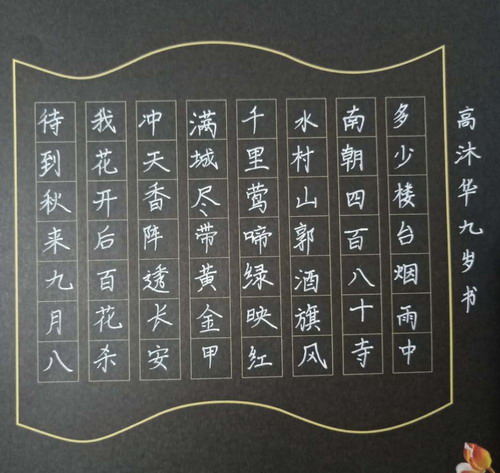 待到秋来九月八
我花开后百花杀
冲天香阵透长安
满城尽带黄金甲
千里莺啼绿映红
水村山郭酒旗风
南朝四百八十寺
多少楼台烟雨中
高沐华九岁书